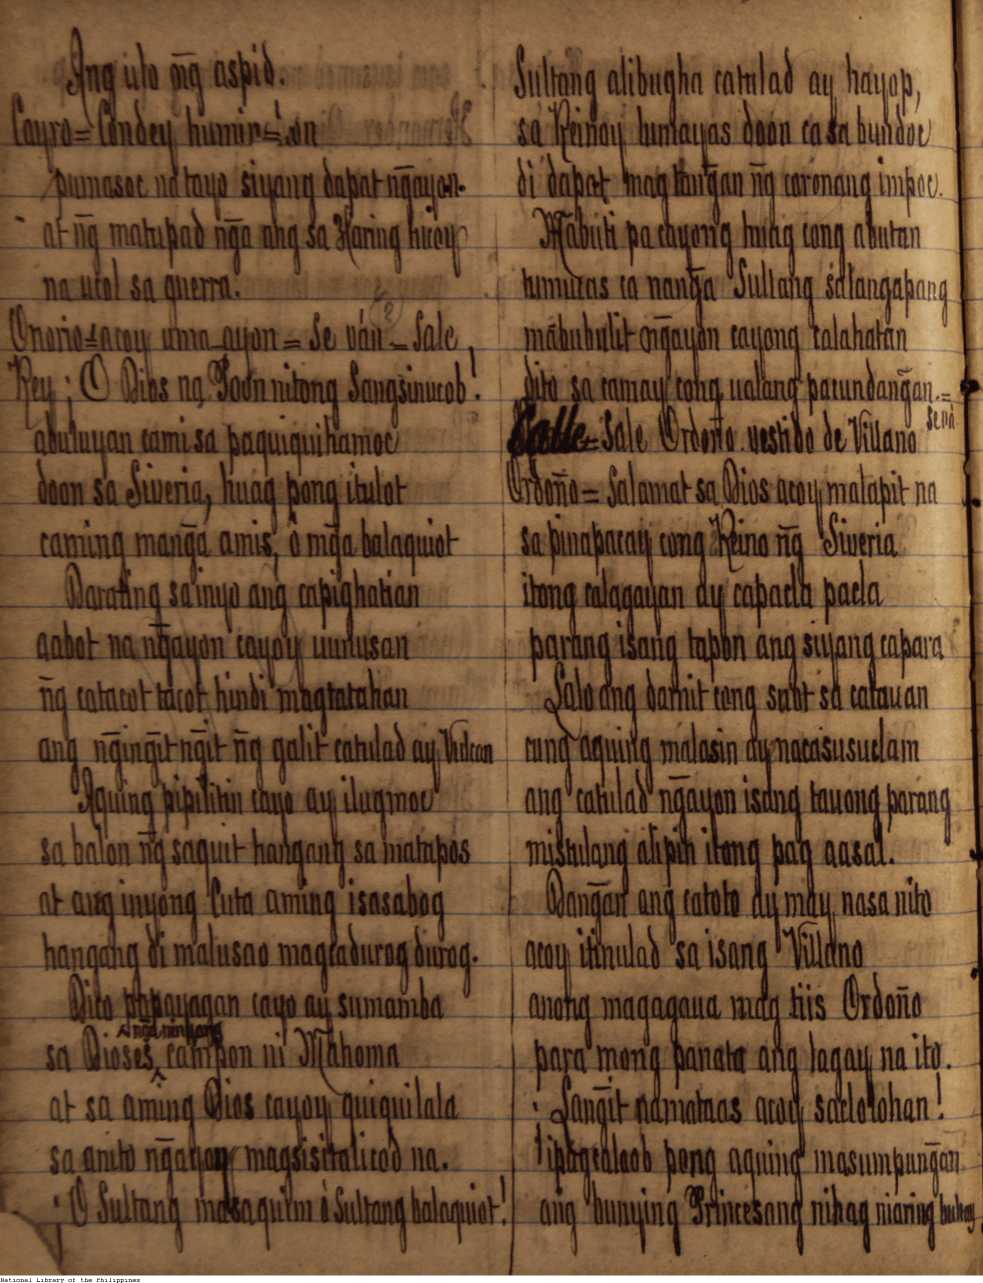 Ang ulo ñg aspid.
Cayro = Condey humir
pumasoc na tayo siyang dapat nḡayon.
at ñg matupad nḡa ang sa Haring hicoy
na utol sa guerra.
Onorio = acoy uma ayon = Se ván - Sale
Rey ¡ O Dios na Poon nitong Sangsinucob!
abuluyan cami sa paquiquihamoc
doon sa Siveria, huag pong itulot
caming manḡa amis, ó mḡa balaquiot
Darating sa inyo ang capighatian
aabot na nḡayon cayoy uunusan
ñg catacot tacot hindi magtatahan
ang nḡinḡit nḡit ñg galit catulad ay Vulcan
Aquing pipilitin cayo ay ilugmoc
sa balon ñg saquit hangang sa matapos
at ang inyong Cuta aming isasabog
hangang di malusao magcadurog durog.
Dito papayagan cayo ay sumamba
sa Dioses, campon ni Mahoma
at sa aming Dios cayoy quiquilala
sa anito nḡayon magsisitalicod na.
¡ O Sultang masaquim ó Sultang balaquiot!
Sultang alibugha catulad ay hayop,
sa Reinoy lumayas doon ca sa bundoc
di dapat mag tanḡan ñg coronang impoc.
Mabuti pa cayong tuag cong abutan
tumucas ca nanḡa Sultang salangapang
mabubulit nḡayon cayong calahatan
dito sa camay cong ualang pacundanḡan. =
Se vá
Calle = Sale Ordoño vestido de Villano
Ordoño = Salamat sa Dios acoy malapit na
sa pinapacay cong Reino ñg Siveria
itong calagayan ay capacla pacla
parang isang tapon ang siyang capara
Lalo ang damit cong suot sa catauan
cung aquing malasin ay nacasusuclam
ang catulad nḡayon isang tauong parang
mistulang alipin itong pag aasal.
Danḡan ang catoto ay may nasa nito
acoy itinulad sa isang Villano
anong magagaua mag tiis Ordoño
para mong panata ang lagay na ito.
¡ Lanḡit na mataas acoy saclolohan!
ipagcaloob pong aquing masumpunḡan
ang bunying Princesang nihag niaring buhay